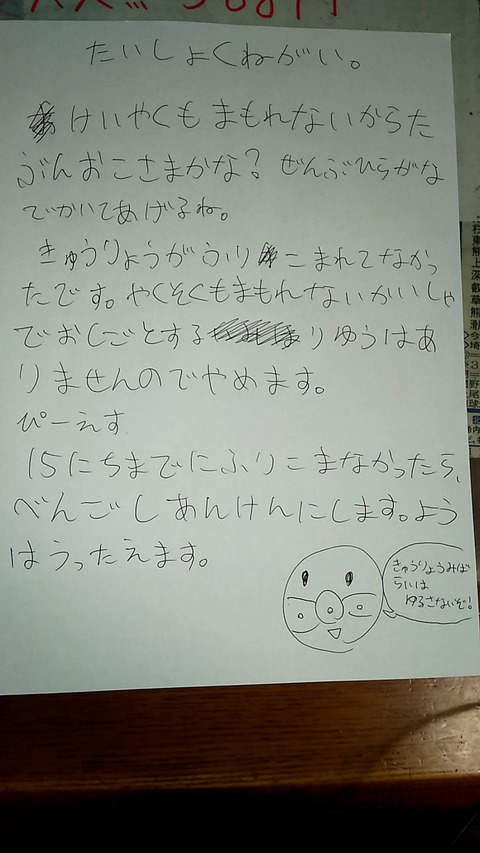 たいしょくねがい。
けいやくもまもれないからた
ぶんおこさまかな? ぜんぶひらがな
でかいてあげるね。
きゅうりょうがふりこまれてなかっ
たです。やくそくもまもれないかいしゃ
でおしごとするりゆうはあ
りませんのでやめます。
ぴーえす
15にちまでにふりこまなかったら、
べんごしあんけんにします。よう
はうったえます。
きゅうりょうみば
らいは
ゆるさないぞ!